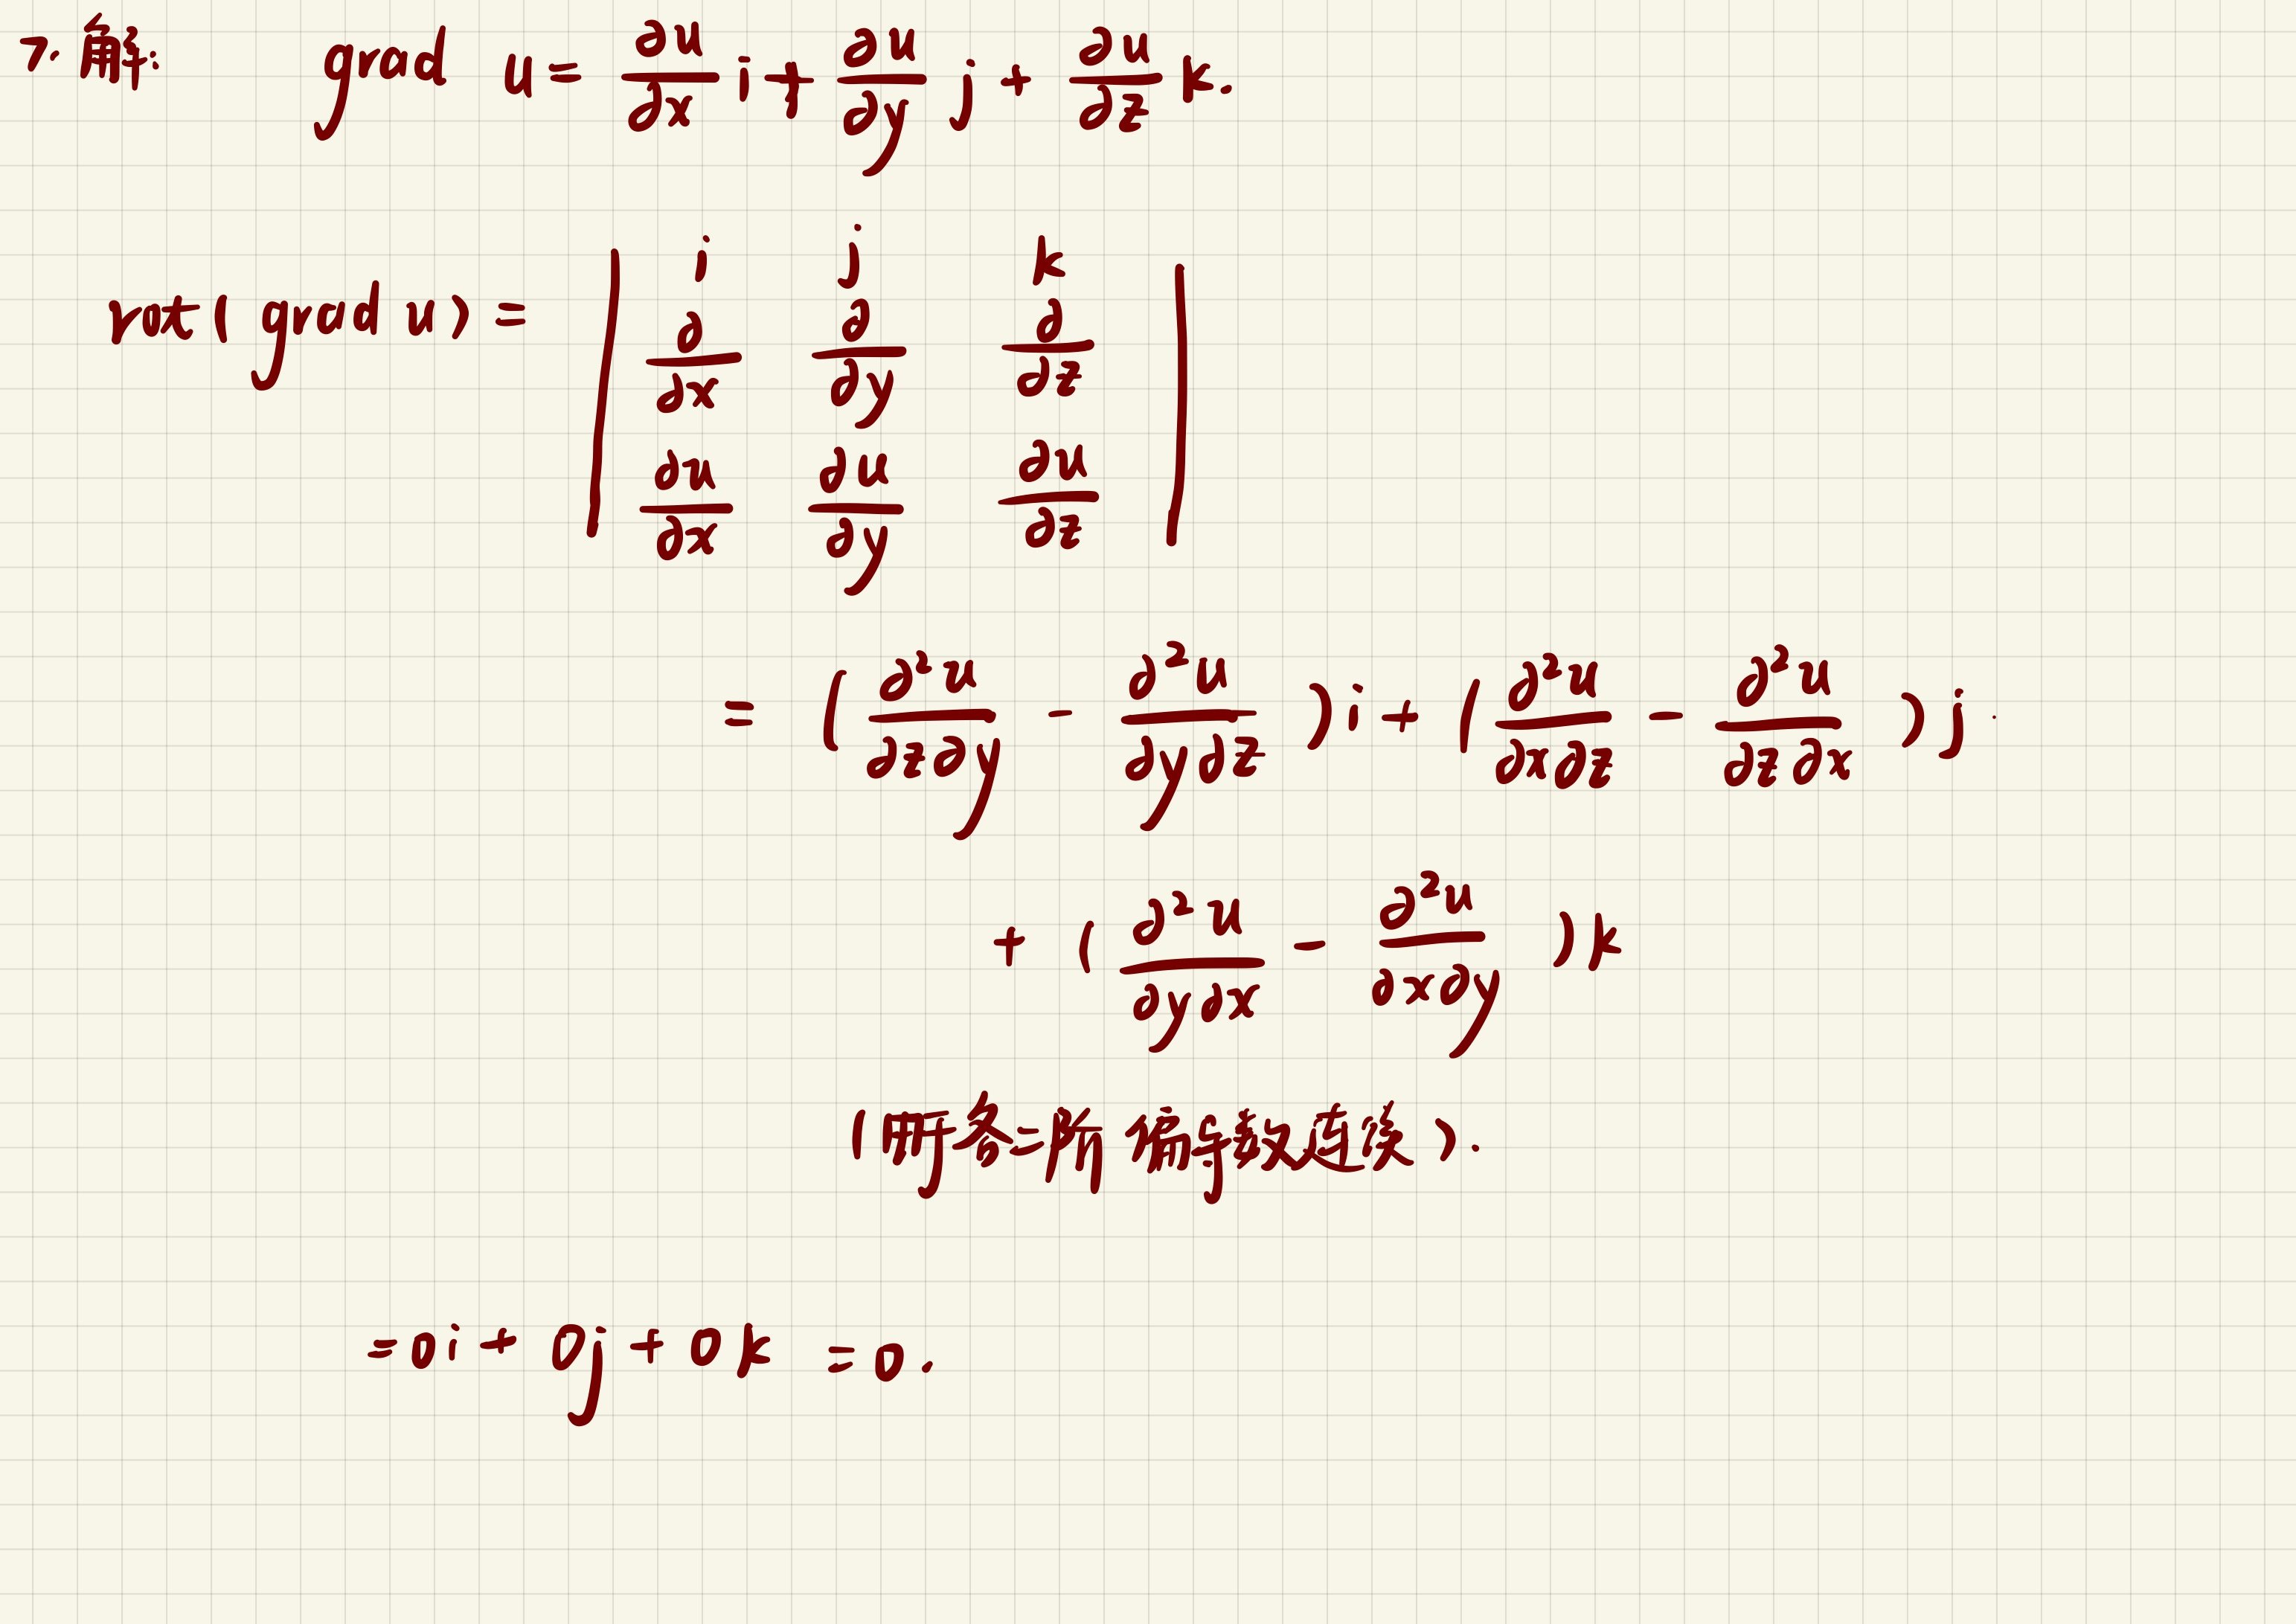 7. 解: grad u = ∂u/∂x i + ∂u/∂y j + ∂u/∂z k.
rot(grad u) = | i j k |
| ∂/∂x ∂/∂y ∂/∂z |
| ∂u/∂x ∂u/∂y ∂u/∂z |
= (∂²u/∂z∂y - ∂²u/∂y∂z) i + (∂²u/∂x∂z - ∂²u/∂z∂x) j
+ (∂²u/∂y∂x - ∂²u/∂x∂y) k
(所各二阶偏导数连续).
= 0i + 0j + 0k = 0.